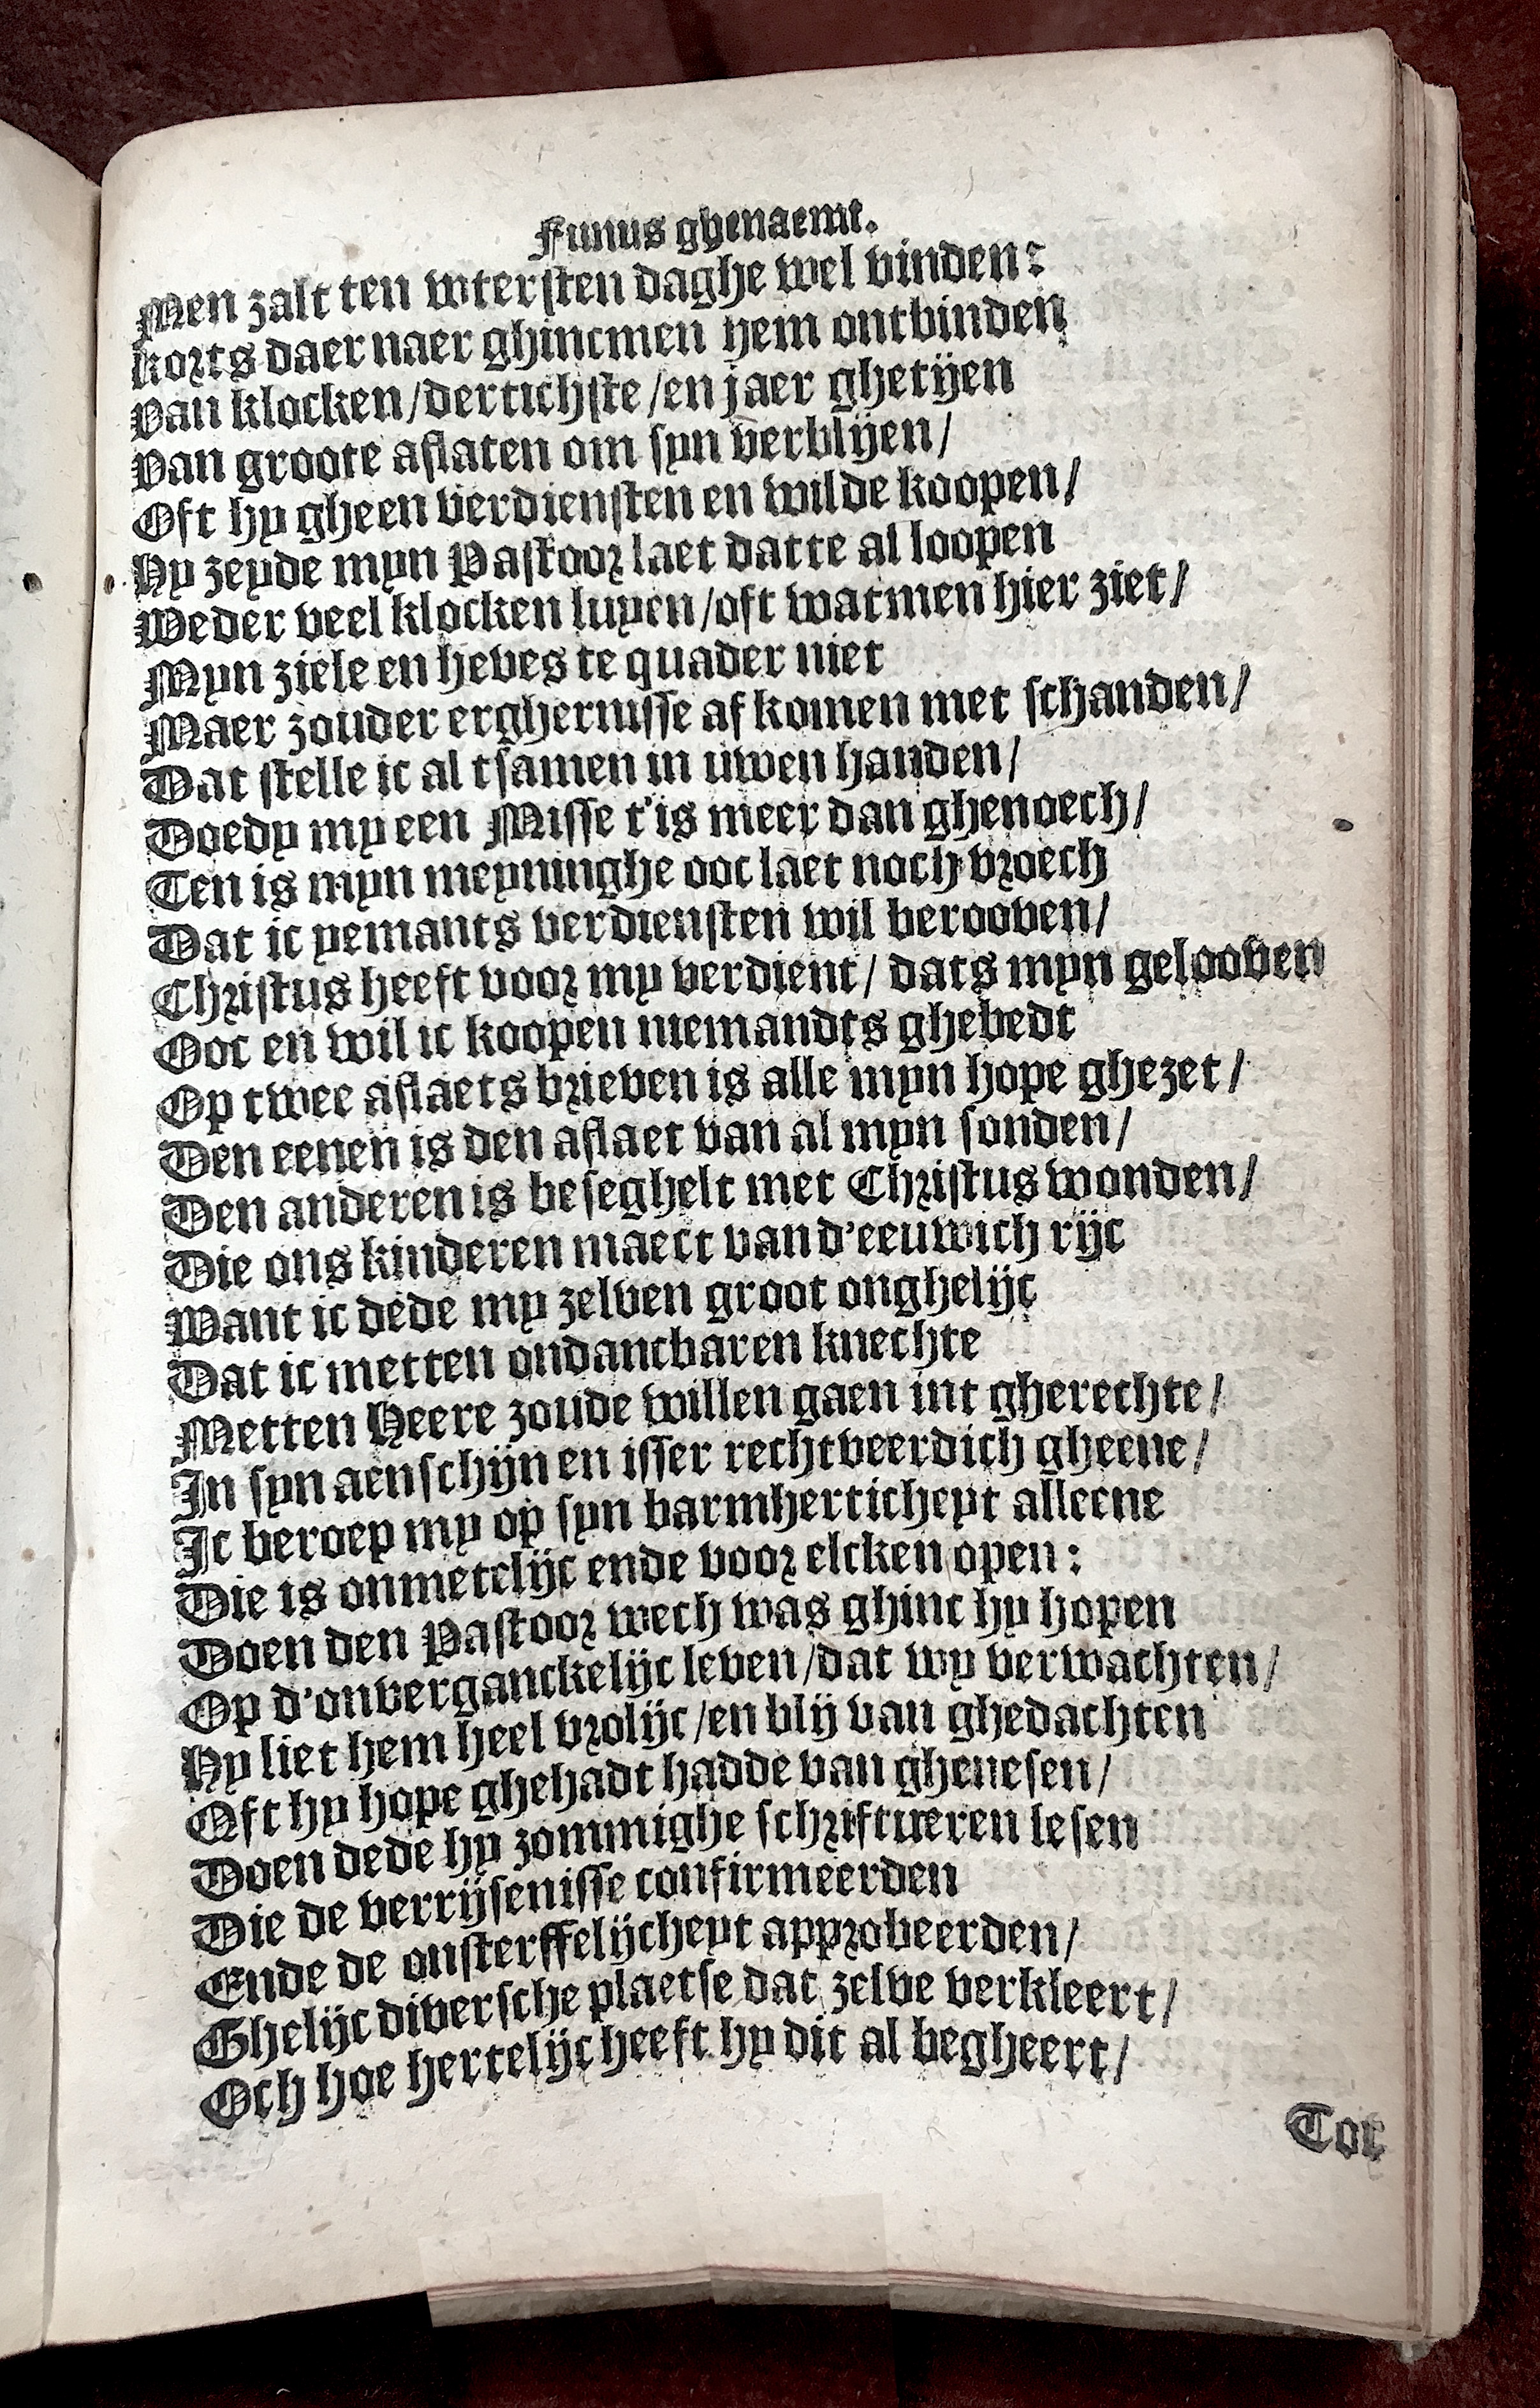 Funus ghenaemt.
Men zalt ten wtersten daghe wel vinden:
korts daer naer ghincmen hem ontbinden
Van klocken/dertichste/en jaer ghetijen
Van groote aflaten om syn verblijen/
Oft hy gheen verdiensten en wilde koopen/
Hy zeyde myn Pastoor laet datte al loopen
Weder veel klocken luyen/oft watmen hier ziet/
Myn ziele en heves te quader niet
Maer zouder erghernisse af komen met schanden/
Dat stelle ic al tsamen in uwen handen/
Doedy my een Misse t'is meer dan ghenoech/
Ten is myn meyninghe ooc laet noch vroech
Dat ic yemants verdiensten wil berooven/
Christus heeft voor my verdient/ dats myn gelooven
Ooc en wil ic koopen niemandts ghebedt
Op twee aflaets brieven is alle myn hope ghezet/
Den eenen is den aflaet van al myn sonden/
Den anderen is beseghelt met Christus wonden/
Die ons kinderen maect van d'eeuwich rijc
Want ic dede my zelven groot onghelijc
Dat ic metten ondancbaren knechte
Metten Heere zoude willen gaen int gherechte/
In syn aenschijn en isser rechtveerdich gheene/
Ic beroep my op syn barmherticheyt alleene
Die is onmetelijc ende voor elcken open:
Doen den Pastoor wech was ghinc hy hopen
Op d'onverganckelijc leven/dat wy verwachten/
Hy liet hem heel vrolijc/en blij van ghedachten
Oft hy hope ghehadt hadde van ghenesen/
Doen dede hy zommighe schriftueren lesen
Die de verrijsenisse confirmeerden
Ende de onsterffelijcheyt approbeerden/
Ghelijc diversche plaetse dat zelve verkleert/
Och hoe hertelijc heeft hy dit al begheert/
Tot